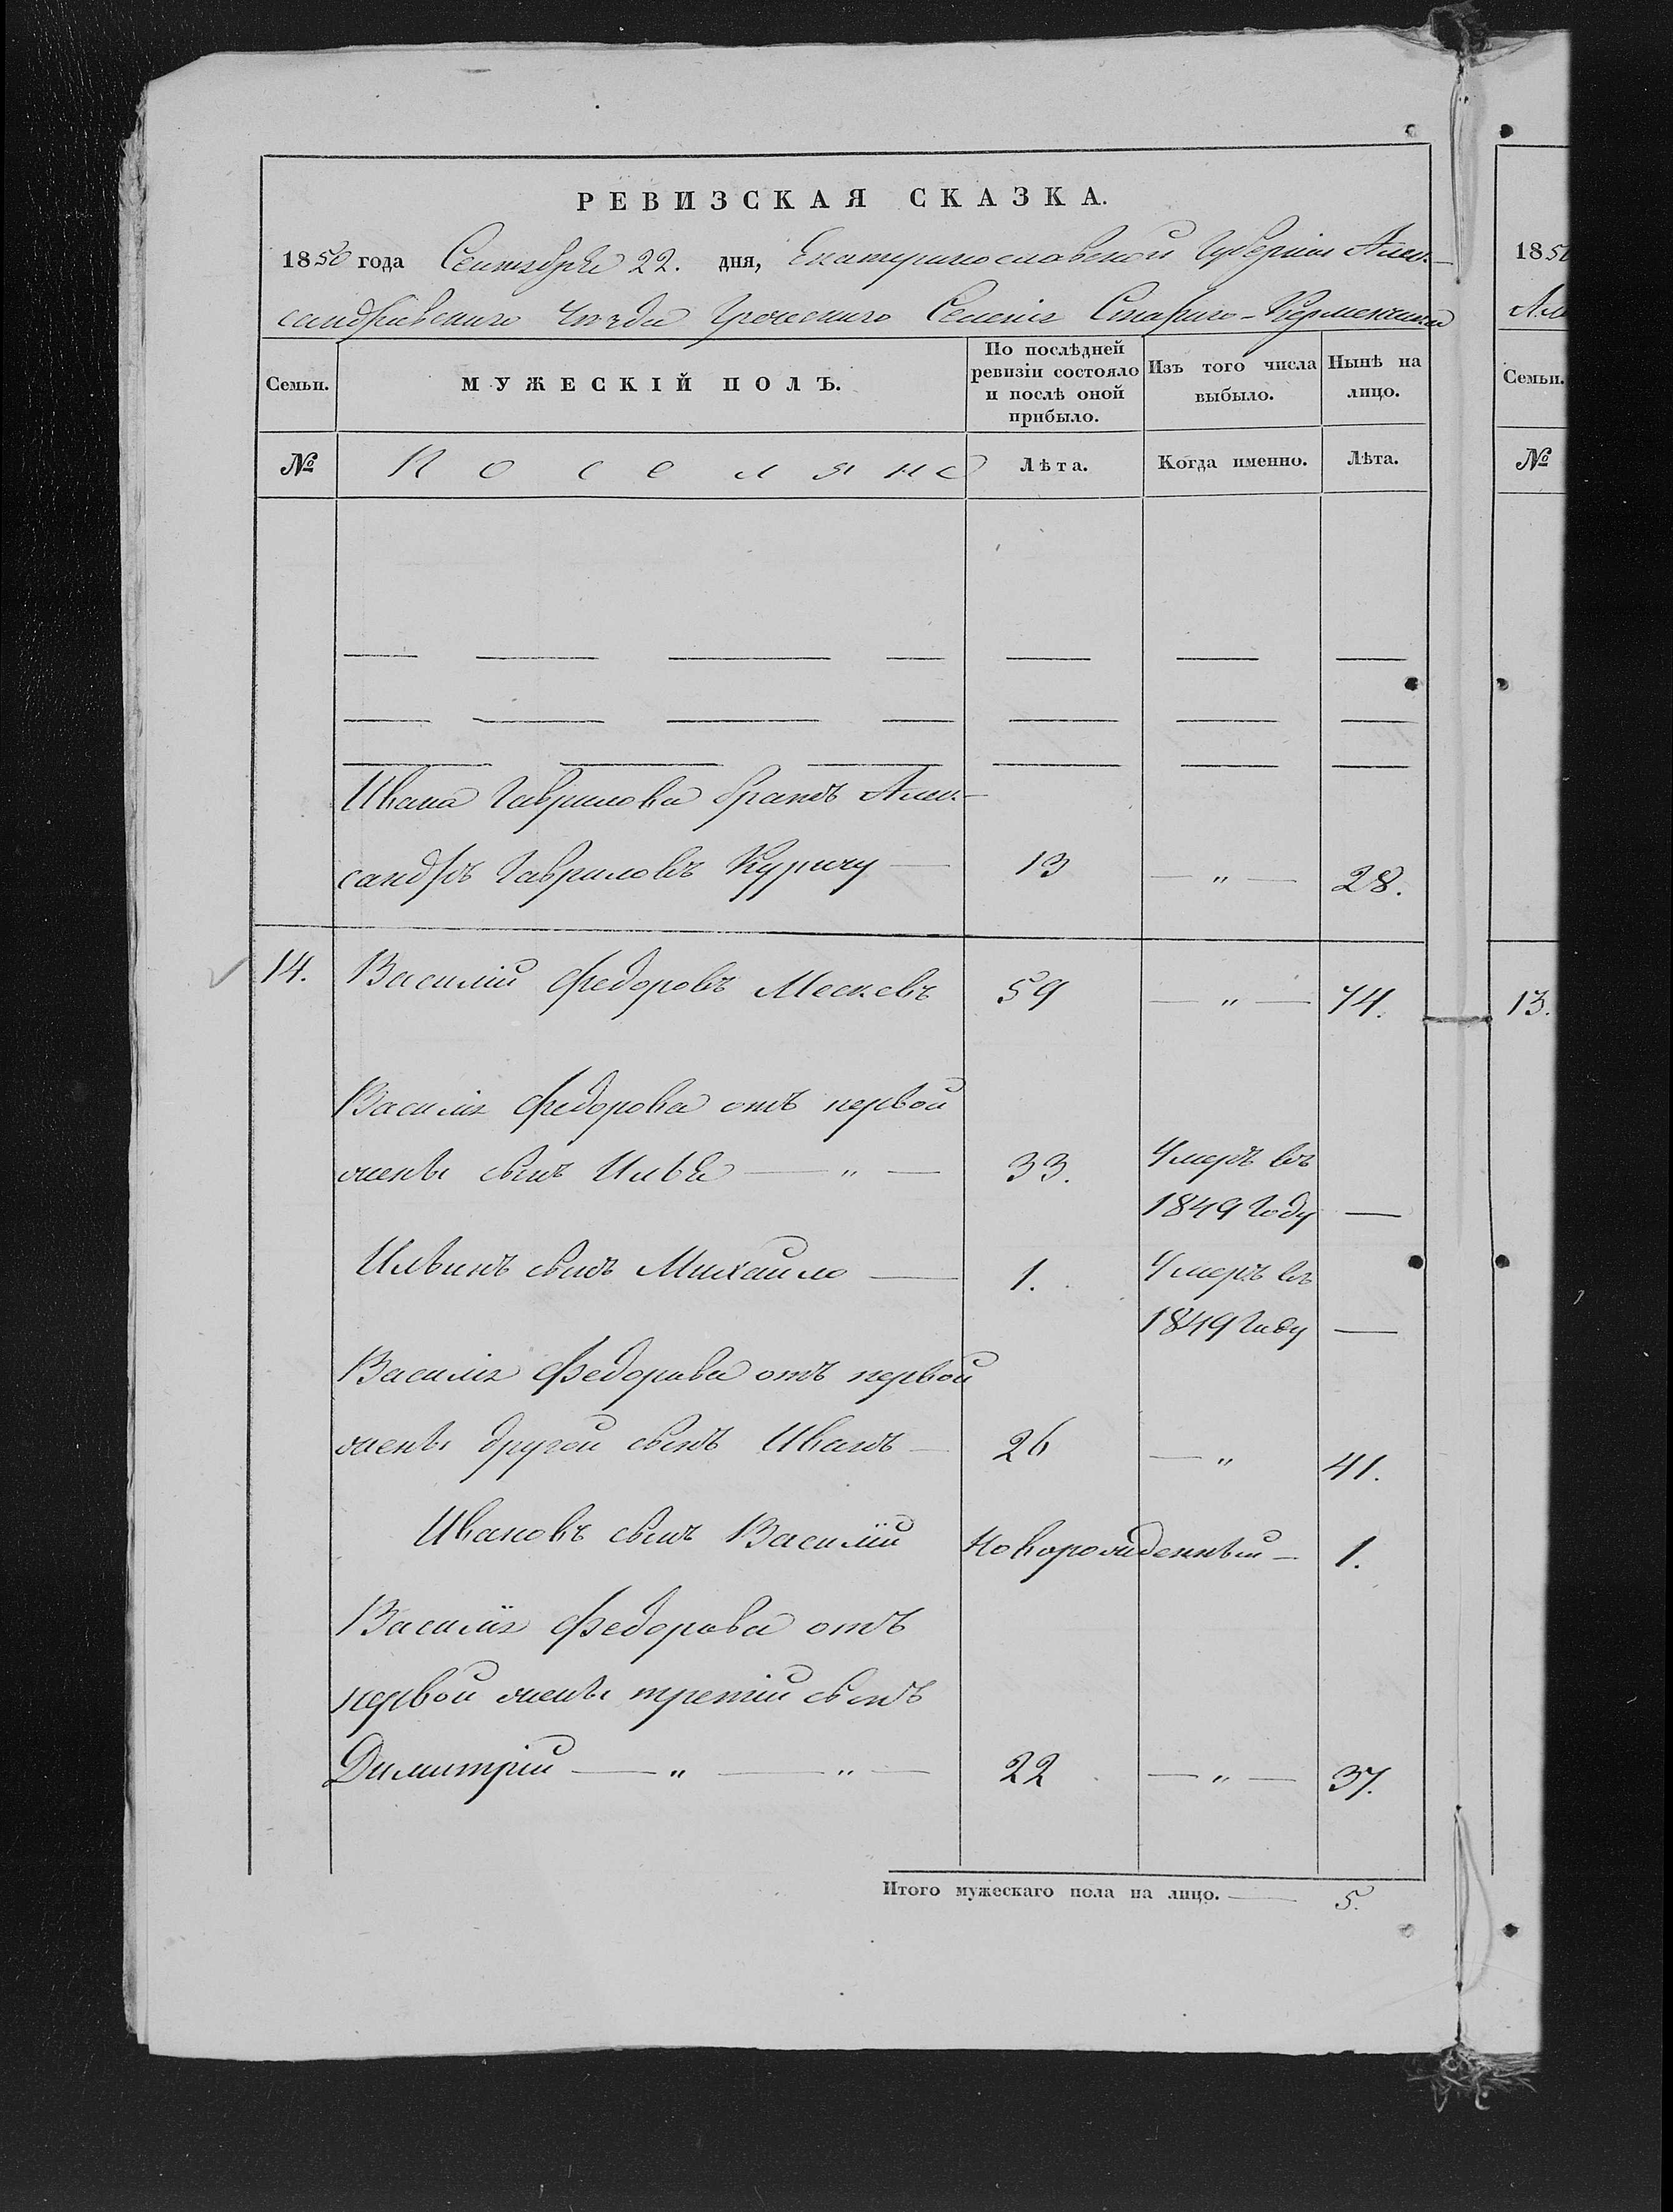 РЕВИЗСКАЯ СКАЗКА.
1850 года Сентября 22. дня, Екатеринославской Губернии Алек-
сандровскаго Уѣзда Греческаго Селенія Стараго-Керменчика
Семьи.
МУЖЕСКІЙ ПОЛЪ.
По послѣдней ревизіи состояло и послѣ оной прибыло.
Изъ того числа выбыло.
Нынѣ на лицо.
№
Поселяне
Лѣта.
Когда именно.
Лѣта.
Ивана Гаврилова братъ Алек-
сандръ Гавриловъ 13 — " — 28.
14. Василій Федоровъ 59 — " — 74.
Василія Федорова отъ первой
жены сынъ Илья — " — 33. Умеръ въ
1849 Году —
Ильинъ сынъ Михайло — 1. Умеръ въ
1849 Году —
Василія Федорова отъ первой
жены другой сынъ Иванъ — 26 — " 41.
Ивановъ сынъ Василій Новорожденный — 1.
Василія Федорова отъ
первой жены третій сынъ
Димитрій — " — " — 22 — " — 37.
Итого мужескаго пола на лицо. — 5.
1850
Але
Семьи.
№
13.